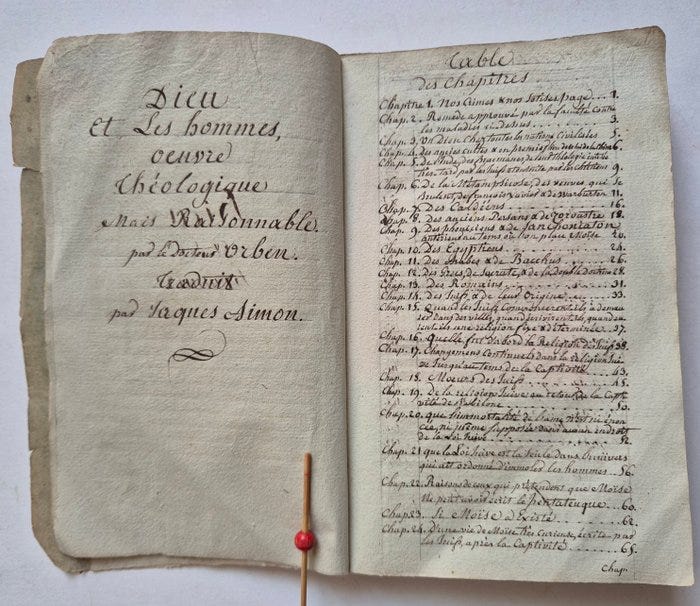 Dieu
et Les hommes,
oeuvre
Théologique
Mais Raisonnable.
par le docteur Orben.
Traduit
par Jaques Simon.
Table
des Chapitres
Chapitre 1. Nos Crimes & nos Sotises page... 1.
Chap. 2. Remede approuvé par la faculté Contre
les maladies ci-dessus 3.
Chap. 3. Un Dieu Chez toutes les nations Civilisées 5.
Chap. 4. Des anciens cultes & en premier lieu de celui de la Chine 6.
Chap. 5. de l'Inde, des Bracmanes de leur théologie imitée
très tard par les Juifs & ensuite par les Chrétiens 9.
Chap. 6. De la Métampsicose, des veuves qui se
brulent, de françois Xavier & de Warburton 11.
Chap. 7. Des Caldéens 16.
Chap. 8. Des anciens Persans & de Zoroastre 18.
Chap. 9. Des phéniciens & de Sanchoniaton
antérieur au tems où l'on place Moïse 20.
Chap. 10. Des Egiptiens 24.
Chap. 11. Des Arabes & de Bacchus 26.
Chap. 12. Des Grecs, de Socrate, & de la double doctrine 28.
Chap. 13. Des Romains 31.
Chap. 14. Des Juifs & de leur Origine 33.
Chap. 15. Quand les Juifs Commencerent ils à demeu
rer dans des villes, quand écrivirent ils, quand eu
rent ils une religion fixe & déterminée 37.
Chap. 16. Quelle fut d'abord la Religion des Juifs 38.
Chap. 17. Changemens Continuels dans la religion Jui
ve Jusqu'au tems de la Captivité 43.
Chap. 18. Moeurs des Juifs 45.
Chap. 19. De la religion Juive au retour de la Capti
vité de Babilone 50.
Chap. 20. que l'immortalité de l'ame n'est ni énon
cée, ni même supposée dans aucun endroit
de la Loi Juive 52.
Chap. 21 que la Loi Juive est la seule dans l'univers
qui ait ordonné d'immoler les hommes 56.
Chap. 22. Raisons de ceux qui prétendent que Moïse
ne peut avoir écrit le pentateuque 60.
Chap 23. Si Moïse a Existé 62.
Chap. 24. D'une vie de Moïse très Curieuse, écrite par
les Juifs, après la Captivité 65.
Chap.